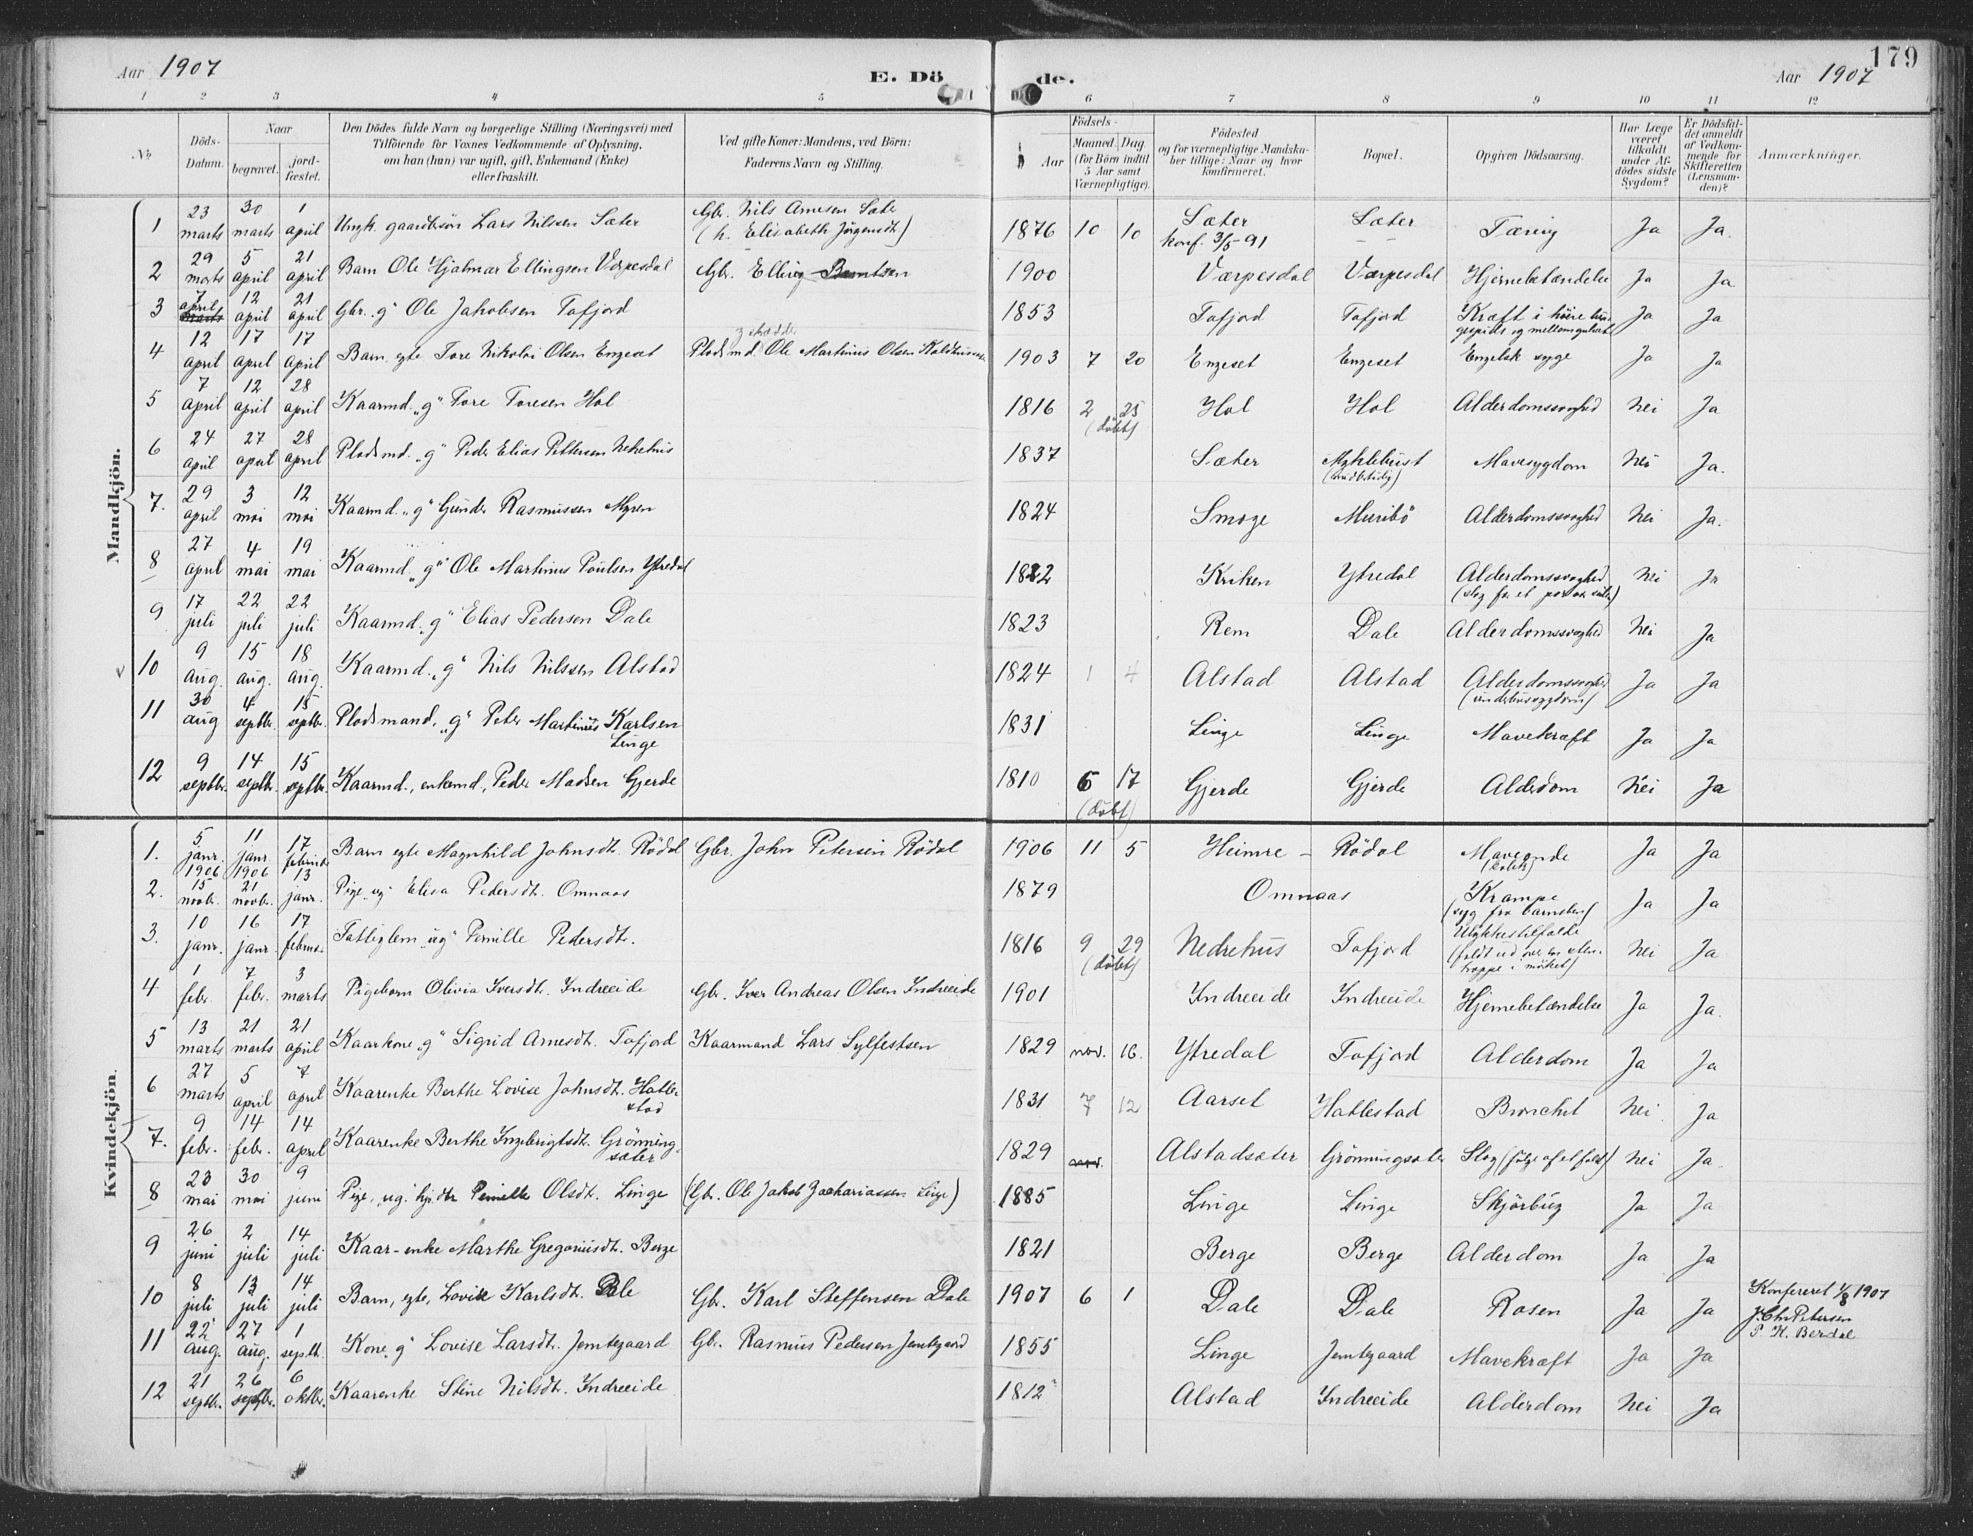 179
Aar 1907
E. Dö
de.
Aar 1907
1 2 3 4 5 6 7 8 9 10 11 12
No
Döds-Datum.
Naar
begravet.
jord-fæstet.
Den Dödes fulde Navn og borgerlige Stilling (Næringsvei) med
Tilföiende for Voxnes Vedkommende af Oplysning,
om han (hun) var ugift, gift, Enkemand (Enke)
eller fraskilt.
Ved gifte Koner: Mandens, ved Börn:
Faderens Navn og Stilling.
Födsels-
Aar
Maaned. Dag.
(for Börn indtil
5 Aar samt
Værnepligtige).
Födested
og for værnepligtige Mandska-
ber tillige: Naar og hvor
konfirmeret.
Bopæl.
Opgiven Dödsaarsag.
Har Læge
været
tilkaldt
under Af-
dödes sidste
Sygdom?
Er Dödsfal-
det anmeldt
af Vedkom-
mende for
Skifteretten
(Lensman-
den)?
Anmærkninger.
Mandkjön.
1 23 marts 30 marts 1 april Ungk. gaardbrsön Lars Nilsen Sæter Gbr. Nils Arnesen Sæte (h. Elisabeth Jörgensdt) 1876 10 10 Sæter konf. 3/5-91 Sæter Tæring Ja Ja.
2 29 marts 5 april 21 april Barn Ole Hjalmar Ellingsen Værpesdal Gbr. Elling Berntsen 1900 Værpesdal Værpesdal Hjernebetændelse Ja Ja
3 7 april marts 12 april 21 april Gbr. "g" Ole Jakobsen Tafjord 1853 Tafjord Tafjord Kræft i höire og mellemgulvet Ja Ja
4 12 april 17 april 17 april Barn, egte Tore Nikolai Olsen Engeset Pladsmd. Ole Martinus Olsen 1903 7 20 Engeset Engeset Engelsk syge Ja Ja
5 7 april 12 april 28 april Kaarmd. "g" Tore Toresen Hol 1816 2 25 (döbt) Hol Hol Alderdomssvaghed Nei Ja
6 24 april 27 april 28 april Pladsmd. "g" Peder Elias Pettersen Nedrehus 1837 Sæter Myklebust (midlertidig) Mavesygdom Nei Ja.
7. 29 april 3 mai 12 mai Kaarmd. "g" Gunder Rasmussen Myren 1824 Smoge Muribö Alderdomssvaghed Nei Ja.
8 27 april 4 mai 19 mai Kaarmd. "g" Ole Martinus Poulsen Ytredal 1822 Kriken Ytredal Alderdomssvaghed (slag for et par aar siden) Nei Ja
9 17 juli 22 juli 22 juli Kaarmd. "g" Elias Pedersen Dale 1823 Rem Dale Alderdomssvaghed Nei Ja
10 9 aug. 15 aug. 18 aug. Kaarmd. "g" Nils Nilssen Alstad 1824 1 4 Alstad Alstad Alderdomssvaghed (underlivssygdom) Ja Ja
11 30 aug 4 septbr. 15 septbr. Pladsmand, "g" Peter Martinus Karlsen Linge 1831 Linge Linge Mavekræft Ja Ja
12 9 septbr. 14 septbr. 15 septbr. Kaarmd., enkemd., Peder Madsen Gjerde 1810 6 17 (döbt) Gjerde Gjerde Alderdom Nei Ja
Kvindekjön.
1. 5 janr. 11 janr. 17 februar Barn egte Magnhild Johnsdt. Rödal Gbr. John Petersen Rödal 1906 11 5 Heimre-Rödal Maveonde (kolik) Ja Ja
2. 1906 15 novbr. 1906 21 novbr. 13 janr. Pige "ug" Elisa Pedersdt. Omnaas 1879 Omnaas Krampe (syg fra barnsben) Ja Ja
3. 10 janr. 16 janr. 17 februar Fattiglem "ug" Pernille Pedersdt. 1816 9 29 (döbt) Nedrehus Tafjord Ulykkestilfælde (faldt ud over en sten-trappe i mörket) Nei Ja
4 1 febr. 7 febr. 3 marts Pigebarn Olivia Iversdt. Indreeide Gbr. Iver Andreas Olsen Indreeide 1901 Indreeide Indreeide Hjernebetændelse Ja Ja.
5 13 marts 21 marts 21 april Kaarkone "g" Sigrid Arnesdt. Tafjord Kaarmand Lars Sylfestsen 1829 nov. 16. Ytredal Tafjord Alderdom Ja Ja
6 27 marts 5 april 7 april Kaarenke Berthe Lovise Johnsdt. Hatlestad 1831 7 12 Aarset Hatlestad Bronchit Nei Ja
7. 9 febr. 14 febr. 14 april Kaarenke Berthe Ingebrigtsdt. Grönningsæter 1829 nov. Alstadsæter Grönningsæter Slag (fölge af et fald) Nei Ja.
8 23 mai 30 mai 9 juni Pige, "ug" Pernille Olsdt. Linge (Gbr. Ole Jakob Zachariassen Linge) 1885 Linge Linge Skjörbug Ja Ja
9 26 juni 2 juli 14 juli Kaar-enke Marthe Gregoriusdt. Berge 1821 Berge Berge Alderdom Ja Ja
10 8 juli 13 juli 14 juli Barn, egte, Lovise Karlsdt. Dale Gbr. Karl Steffensen Dale 1907 6 1 Dale Dale Rosen Ja Ja Konfereret 1/8 1907
J. Chr. Petersen
P. K. Berdal
11 22 aug. 27 aug. 1 septbr. Kone "g" Lovise Larsdt. Jemtegaard Gbr. Rasmus Pedersen Jemtegaard 1855 Linge Jemtegaard Mavekræft Ja Ja
12 21 septbr. 26 septbr. 6 oktbr. Kaarenke Stine Nilsdt. Indreeide 1812 Alstad Indreeide Alderdom Nei Ja